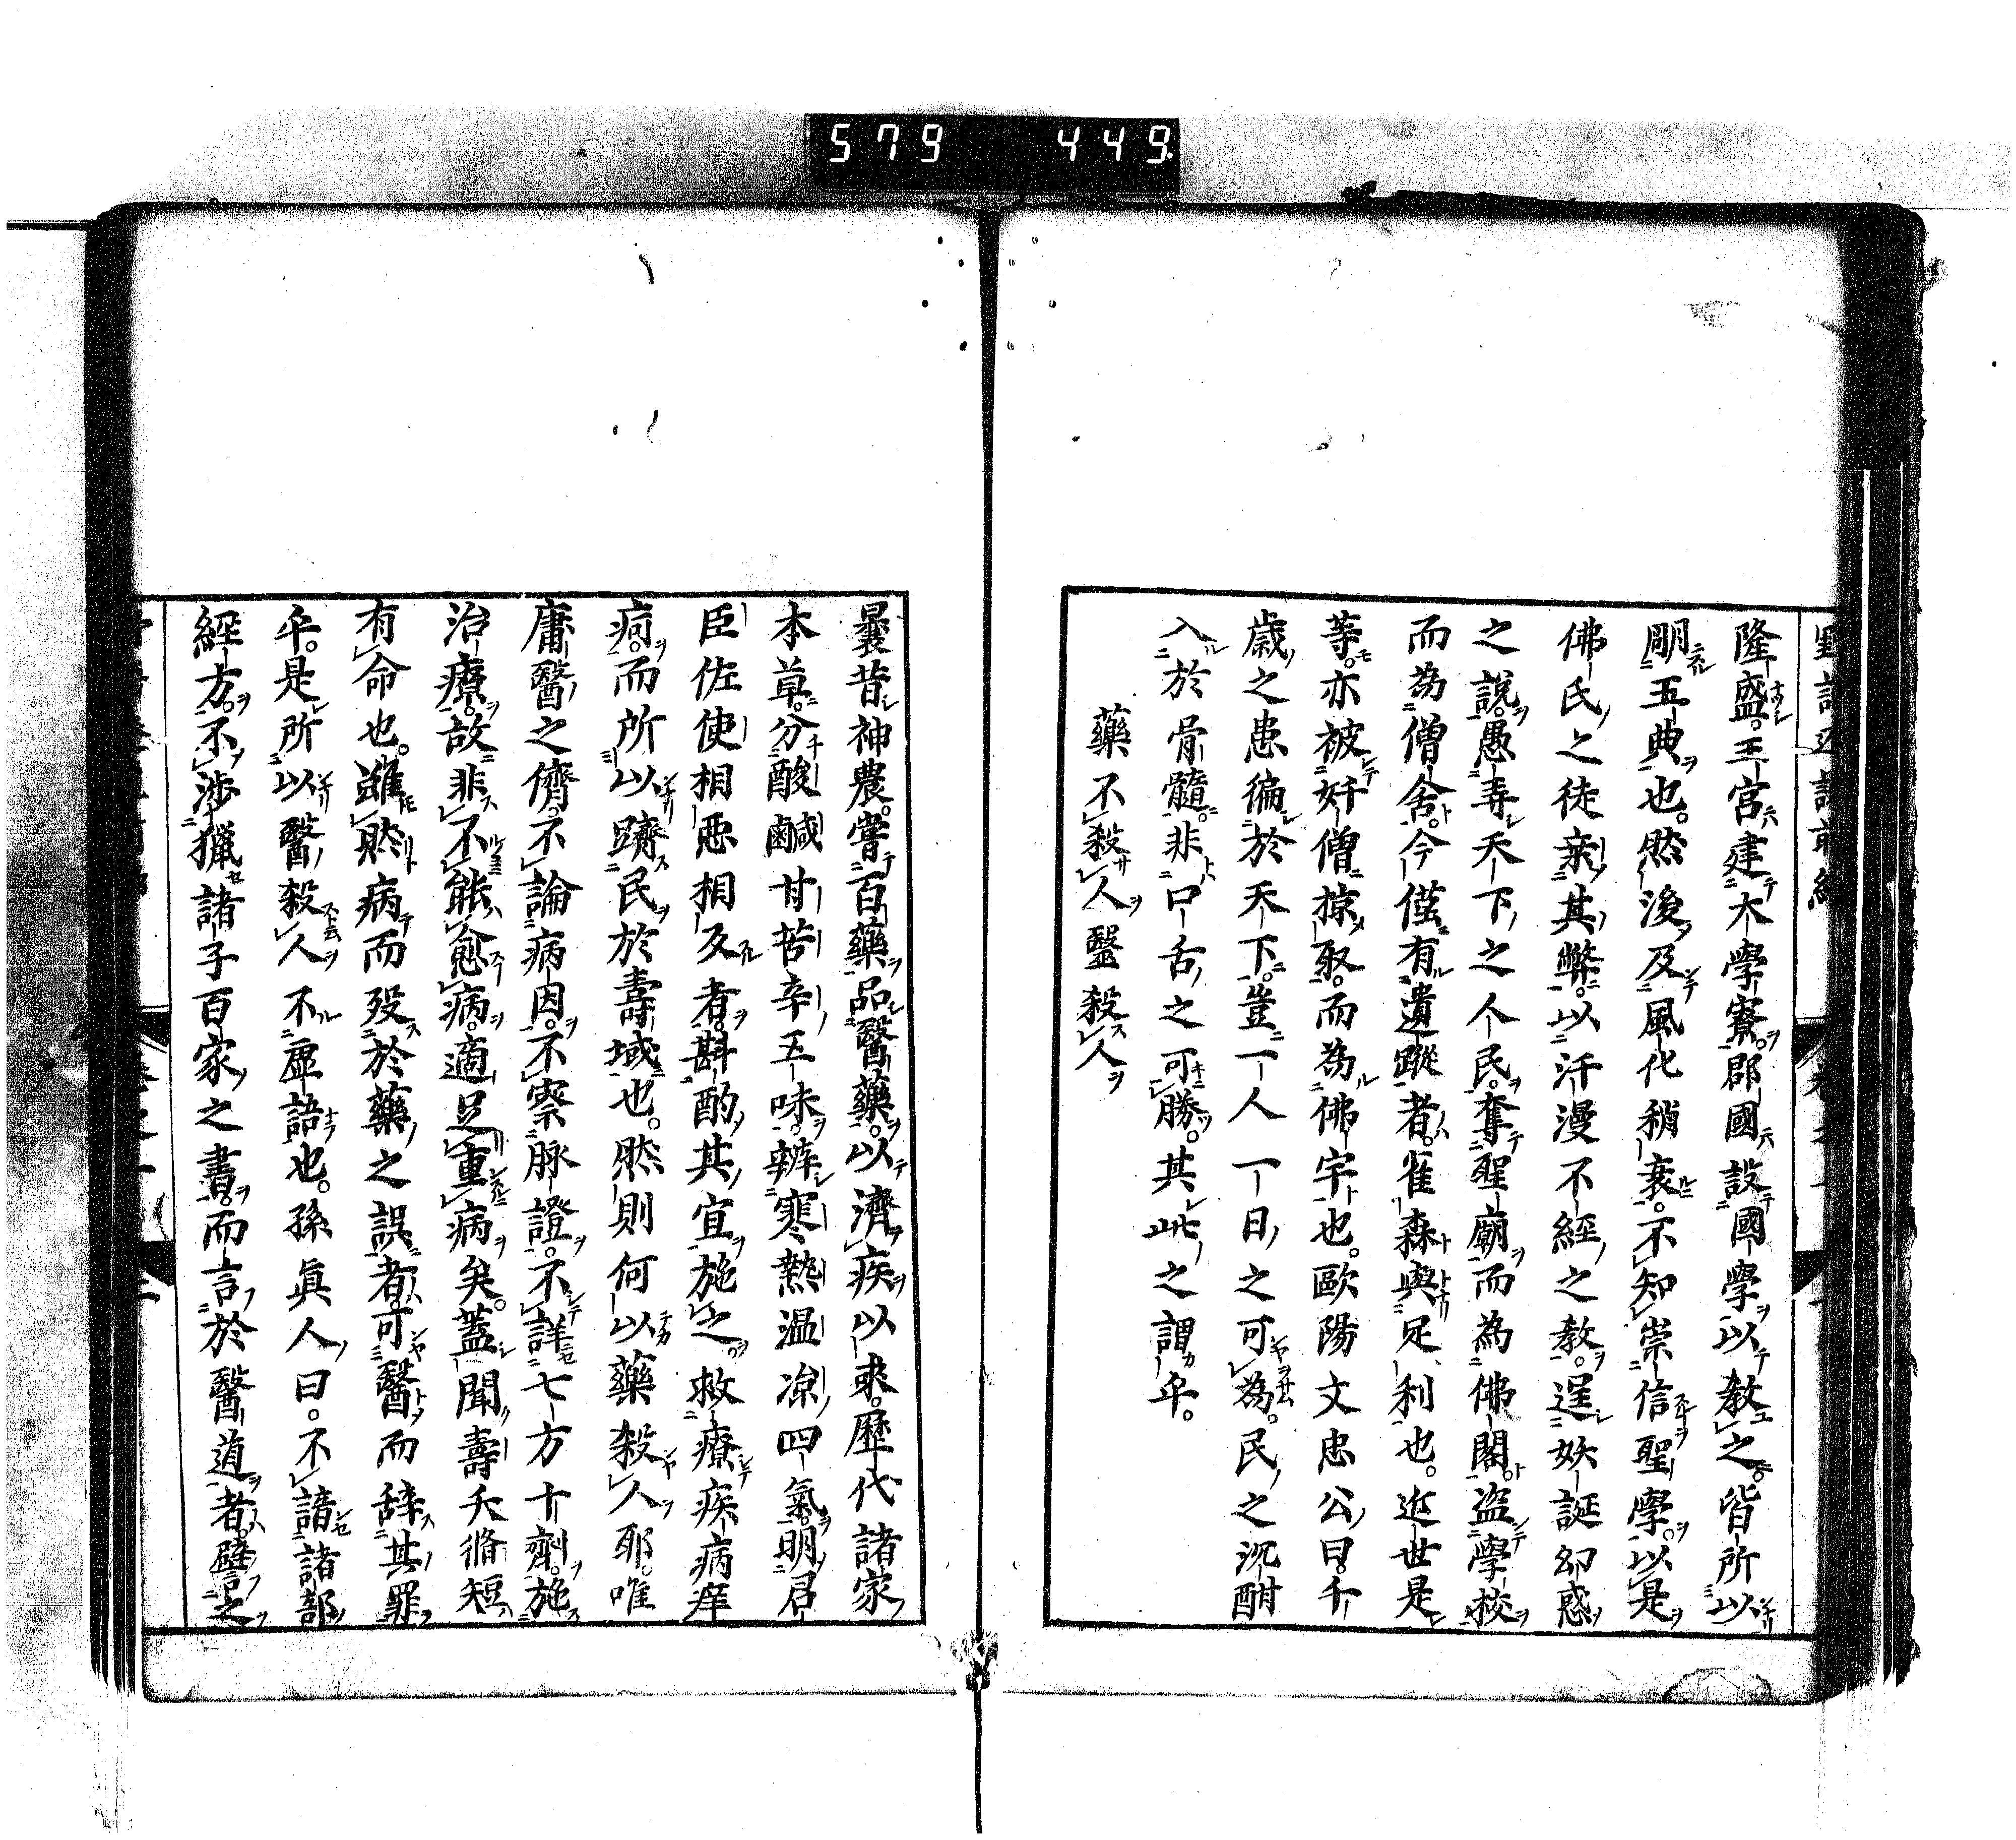 579 449
隆盛。王宮建大學寮。郡國設國學以教之。皆所以
明五典也。然後及風化稍衰。不知崇信聖學。以是
佛氏之徒乘其弊。以汗漫不經之教。逞妖誕幻惑
之說。愚弄天下之人民。奪聖廟而為佛閣。盜學校
而為僧舍。今僅有遺蹤者。雀森與足利也。近世是
等。亦被奸僧掠取。而為佛宇也。歐陽文忠公曰。千
歲之患徧於天下。豈一人一日之可為。民之沉酣
入於骨髓。非口舌之可勝。其此之謂乎。
藥不殺人醫殺人
曩昔神農。嘗百藥品醫藥。以濟疾以來。歷代諸家
本草。分酸鹹甘苦辛五味。辨寒熱温凉四氣。明君
臣佐使相惡相反者。斟酌其宜施之。救療疾病痒
痾。而所以躋民於壽域也。然則何以藥殺人耶。唯
庸醫之儕。不論病因。不察脉證。不詳七方十劑。施
治療。故非不能愈病。適足重病矣。蓋聞壽夭脩短
有命也。雖然病而殁於藥之誤者。可醫而辞其罪
乎。是所以醫殺人不虛語也。孫眞人曰。不諳諸部
經方。不涉獵諸子百家之書。而言於醫道者。譬之